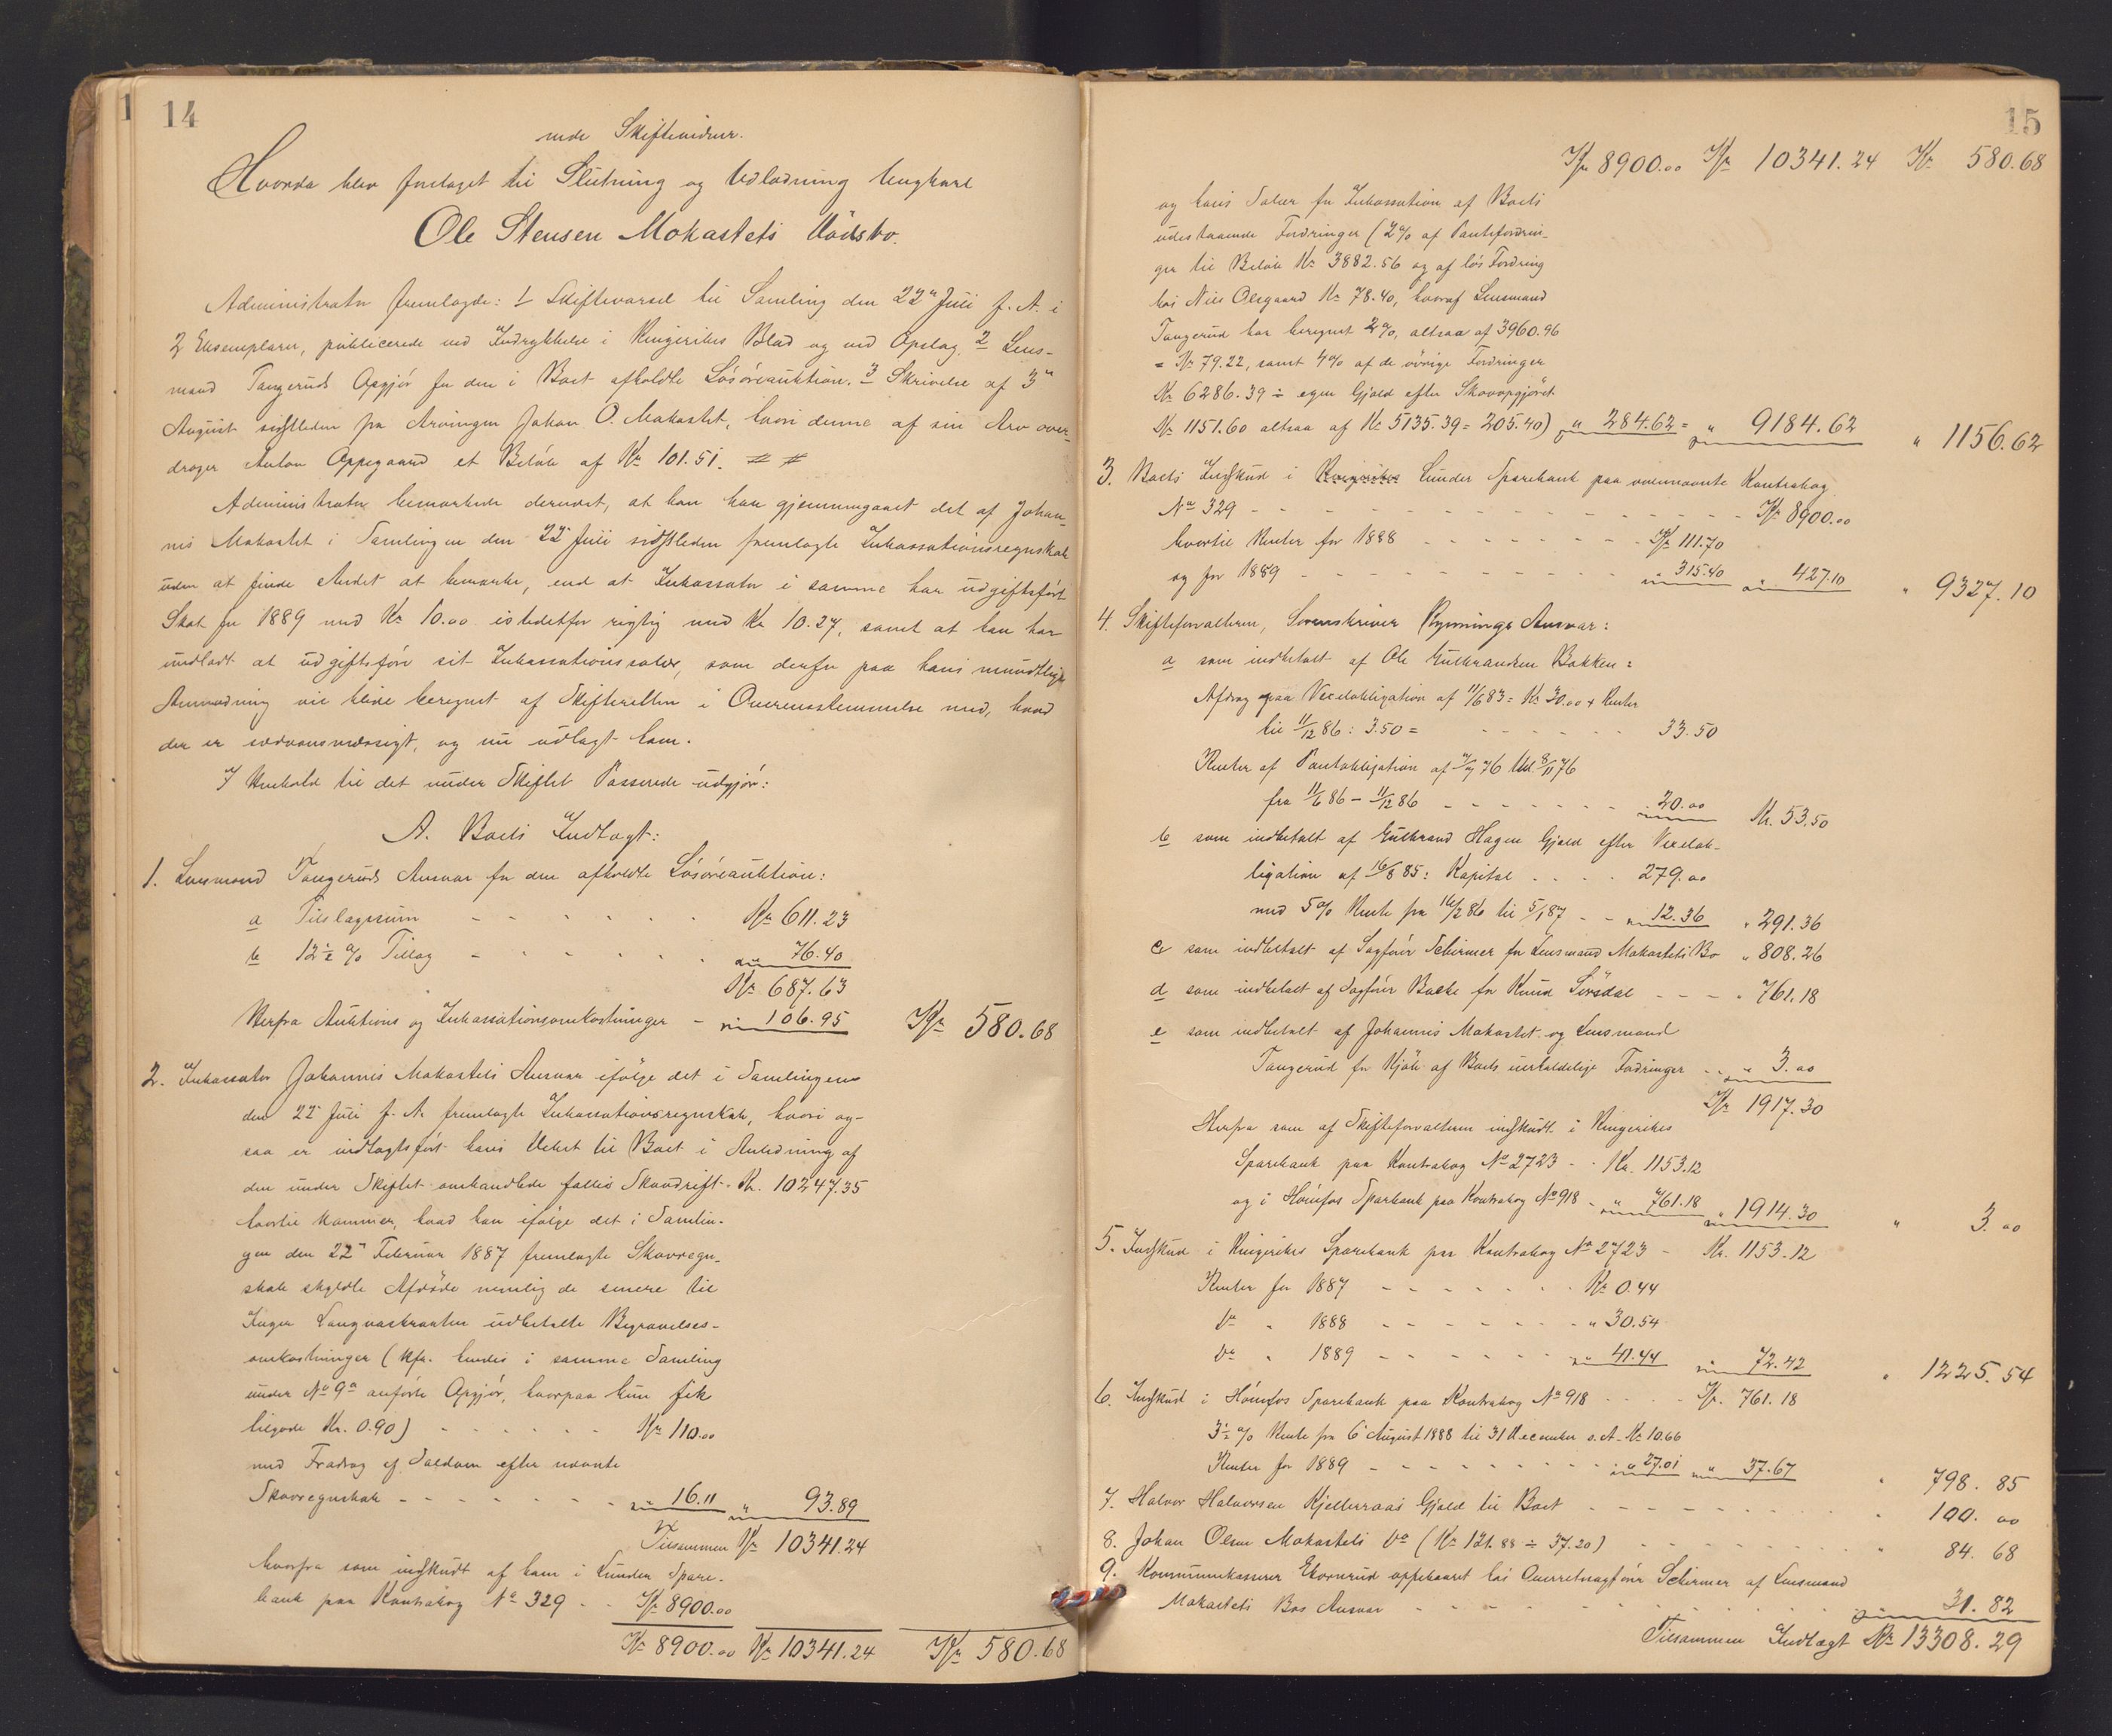 14
Skiftevidner.
Hvorda blev foretaget til Slutning og Udlodning Ungkarl
Ole Stensen Mokastets Dødsbo.
Administrator fremlagde: 1 Skiftevarsel til Samling den 22de Juli f. A. i
2 Exemplarer, publicerede ved Indrykkelse i Ringerikes Blad og ved Opslag, 2 Lens-
mand Tangeruds Opgjør for den i Boet afholdte Løsøreauktion. 3 Skrivelse af 3die
August sidstleden fra Arvingen Johan O. Mokastet, hvori denne af sin Arv over-
drager Anton Oppegaard et Beløb af Kr 101.51.
Administrator bemærkede dernæst, at han har gjennemgaaet det af Johan-
nis Mokastet i Samlingen den 22de Juli sidstleden fremlagte Inkassationsregnskab
uden at finde Andet at bemærke, end at Inkassator i samme har udgiftsført
Skat for 1889 med Kr 10.00 istedetfor rigtig med Kr 10.27, samt at han har
undladt at udgiftsføre sit Inkassationssalær, som derfor paa hans mundtlige
Anmodning vil blive beregnet af Skifteretten i Overensstemmelse med, hvad
der er sædvansmæssigt, og nu udlagt ham.
I Henhold til det under Skiftet Passerede udgjør:
A. Boets Indtægt:
1. Lensmand Tangeruds Ansvar for den afholdte Løsøreauktion:
a Tilslagssum - - - - - - Kr 611.23
b 12½ % Tillæg - - - - - - " 76.40
Kr 687.63
Herfra Auktions og Inkassationsomkostninger - " 106.95 Kr 580.68
2. Inkassator Johannis Mokastets Ansvar ifølge det i Samlingen
den 22de Juli f. A. fremlagte Inkassationsregnskab, hvori og-
saa er indtægtsført hans Debet til Boet i Anledning af
den under Skiftet omhandlede fælles Skovdrift - Kr. 10247.35
hvortil kommer, hvad han ifølge det i Samlin-
gen den 22de Februar 1887 fremlagte Skovregn-
skab skyldte Afdøde nemlig de senere til
Inger udbetalte Begravelses-
omkostninger (kfr. hendes i samme Samling
under No 9a anførte Opgjør, hvorpaa hun fik
tilgode Kr. 0.90) - - - - - - Kr 110.00
med Fradrag af Saldoen efter nævnte
Skovregnskab - - - - - - - " 16.11 " 93.89
Tilsammen Kr 10341.24
hvorfra som indskudt af ham i Lunder Spare-
bank paa Kontrabog No 329 - - Kr 8900.00
Kr 8900.00 Kr 10341.24 Kr 580.68
15
Kr 8900.00 Kr 10341.24 Kr 580.68
og hans Salær for Inkassation af Boets
udestaaende Fordringer (2% af Pantefordrin-
ger til Beløb Kr 3882.56 og af løs Fordring
hos Nils Olsgaard Kr 78.40, hvoraf Lensmand
Tangerud har beregnet 2%, altsaa af 3960.96
= Kr 79.22, samt 4% af de øvrige Fordringer
Kr 6286.39 ÷ egen Gjæld efter Skovopgjøret
Kr 1151.60 altsaa af Kr 5135.39 = 205.40) " 284.62 = " 9184.62 " 1156.62
3. Boets Indskud i Lunder Sparebank paa ovennævnte Kontrabog
No 329 - - - - - - - - - - - - - - Kr 8900.00
hvortil Renter for 1888 - - - - - - - Kr 111.70
og for 1889 - - - - - - - - - - " 315.40 " 427.10 " 9327.10
4. Skifteforvalteren, Sorenskriver Rynnings Ansvar:
a som indbetalt af Ole Gulbrandsen Bakken:
Afdrag paa Vexelobligation af 11/6 83 = Kr 30.00 + Renter
til 11/12 86: 3.50 = - - - - - - 33.50
Renter af Pantobligation af 76 tinl. 8/11 76
fra 11/6 86 - 11/12 86 - - - - - - - 20.00 Kr. 53.50
b som indbetalt af Gulbrand Hagen Gjæld efter Vexelob-
ligation af 16/8 85: Kapital . . . . 279.00
med 5% Rente fra 16/2 86 til 5/1 87 - - " 12.36 " 291.36
c som indbetalt af Sagfører Schirmer for Lensmand Mokastets Bo " 808.26
d som indbetalt af Sagfører Bache for Knud Sørsdal - - - " 761.18
e som indbetalt af Johannis Mokastet og Lensmand
Tangerud for Kjøb af Boets uerholdelige Fordringer - - " 3.00
Kr 1917.30
Herfra som af Skifteforvalteren indskudt i Ringerikes
Sparebank paa Kontrabog No 2723 - - Kr. 1153.12
og i Hønefos Sparebank paa Kontrabog No 918 - " 761.18 " 1914.30 " 3.00
5. Indskud i Ringerikes Sparebank paa Kontrabog No 2723 - Kr. 1153.12
Renter for 1887 - - - - - - - Kr 0.44
Do " 1888 - - - - - - - " 30.54
Do " 1889 - - - - - - " 41.44 " 72.42 " 1225.54
6. Indskud i Hønefos Sparebank paa Kontrabog No 918 - - - - Kr. 761.18
3½ % Rente fra 6 August 1888 til 31 December s. A. Kr 10.66
Renter for 1889 - - - - - - - - - " 27.01 " 37.67 " 798.85
7. Halvor Halvorsen Kjellerraas Gjæld til Boet - - - - - - - " 100.00
8. Johan Olsen Mokastets Do (Kr 121.88 ÷ 37.20) - - - - - - - " 84.68
9. Kommunekasserer oppebaaret hos Overretssagfører Schirmer af Lensmand
Mokastets Bos Ansvar - - - - - - - - - - - " 31.82
Tilsammen Indtægt Kr 13308.29